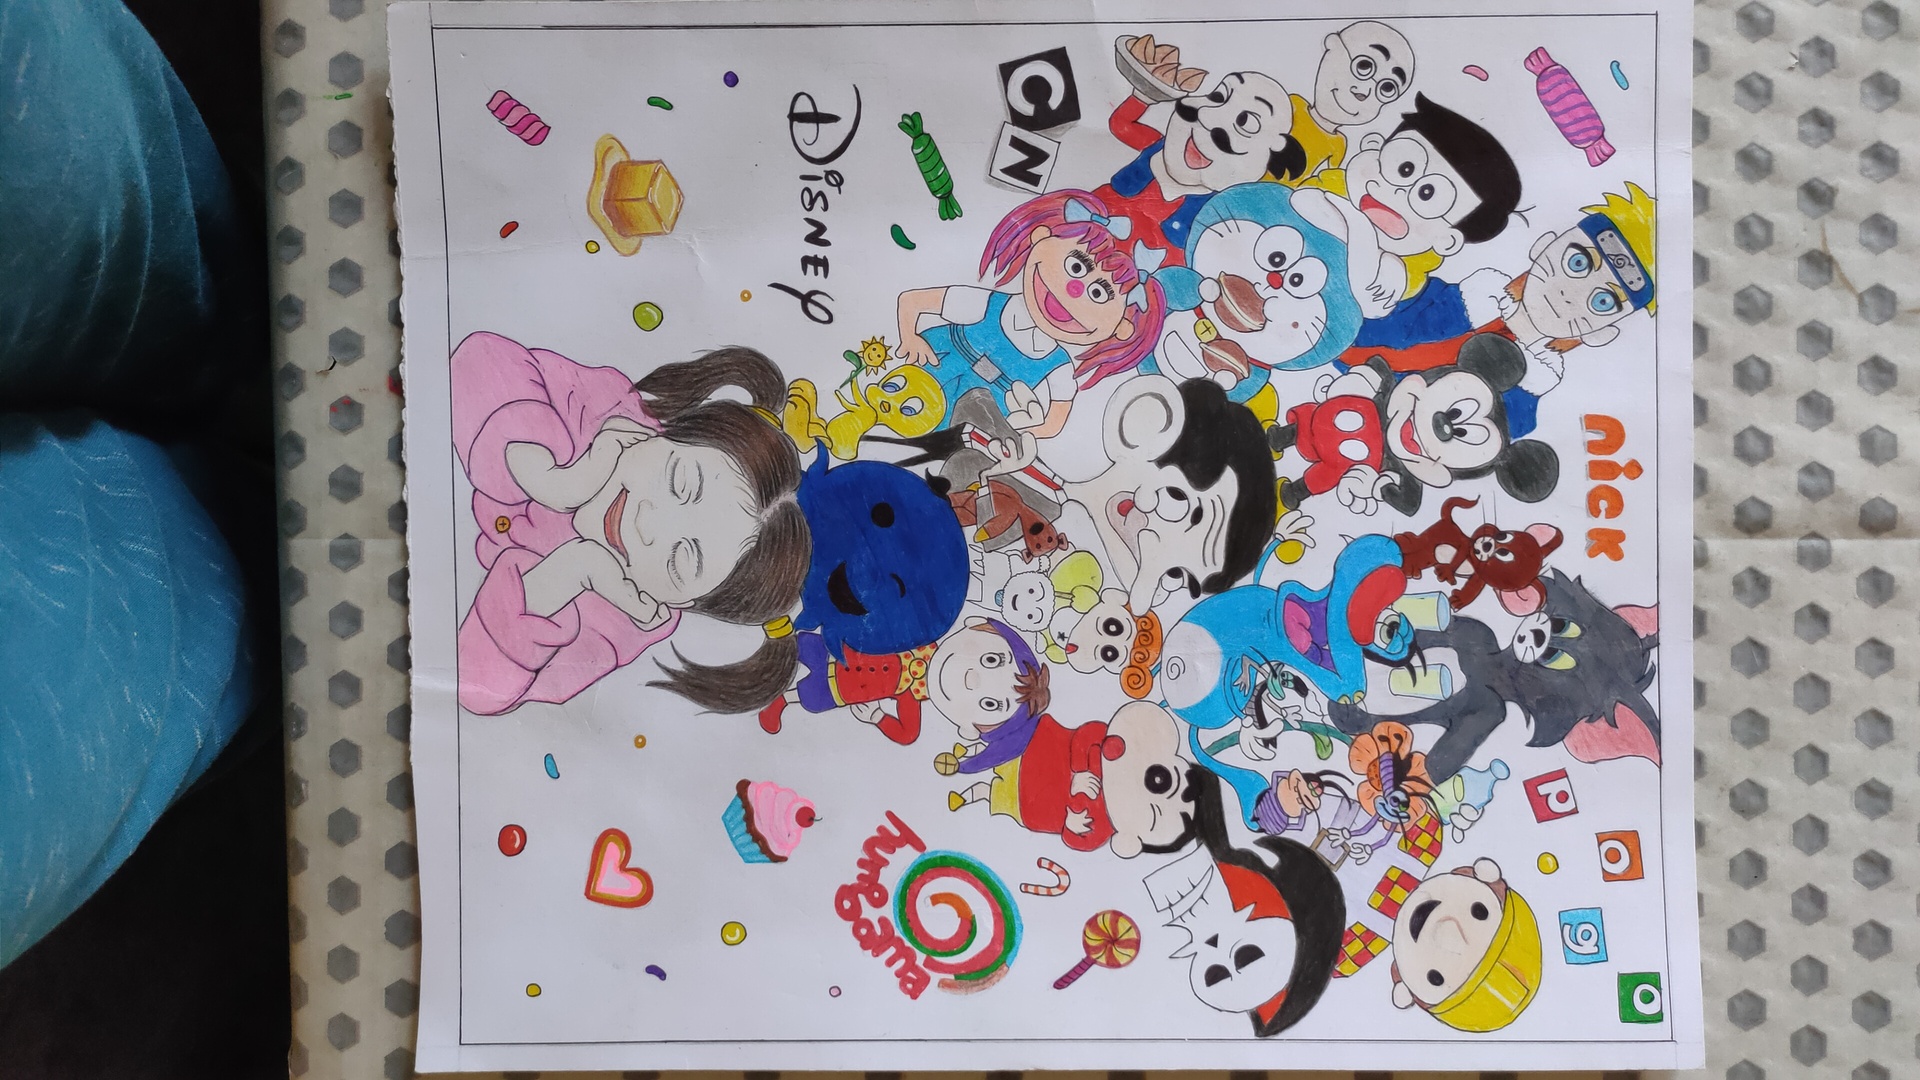 nick
pogo
CN
hungama
Disney